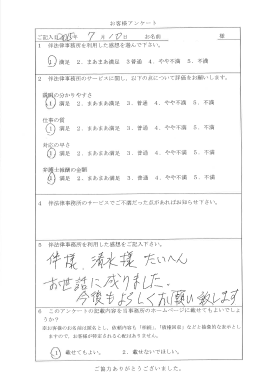 お客様アンケート
ご記入日 2015年 7月10日 お名前 様
1 伴法律事務所を利用した感想を選んで下さい。
1. 満足 2. まあまあ満足 3 普通 4. やや不満 5. 不満
2 伴法律事務所のサービスに関し、以下の点について評価をお願いします。
説明の分かりやすさ
1 満足 2. まあまあ満足 3. 普通 4. やや不満 5. 不満
仕事の質
1 満足 2. まあまあ満足 3. 普通 4. やや不満 5. 不満
対応の早さ
1 満足 2. まあまあ満足 3. 普通 4. やや不満 5. 不満
弁護士報酬の金額
1 満足 2. まあまあ満足 3. 普通 4. やや不満 5. 不満
4 伴法律事務所のサービスでご不満だった点があればお知らせ下さい。
5 伴法律事務所を利用した感想をご記入下さい。
伴様、清水様 たいへん
お世話に成りました。
今後もよろしくお願い致します
6 このアンケートの記載内容を当事務所のホームページに載せてもよいでしょうか?
1 載せてもよい。 2. 載せないでほしい。
ご協力ありがとうございました。